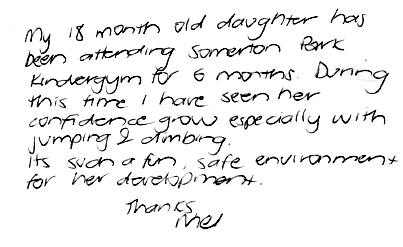 My 18 month old daughter has
been attending Somerton Park
Kindergym for 6 months. During
this time I have seen her
confidence grow especially with
jumping & climbing.
Its such a fun, safe environment
for her development.
Thanks
Mel